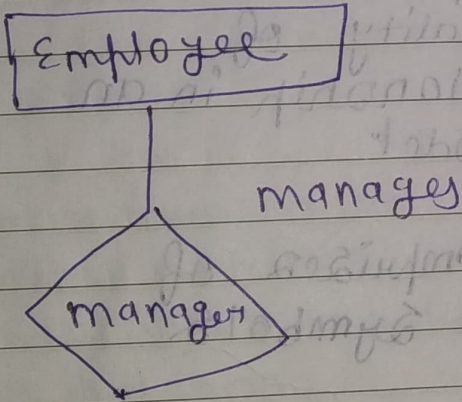 Employee
manages
manager